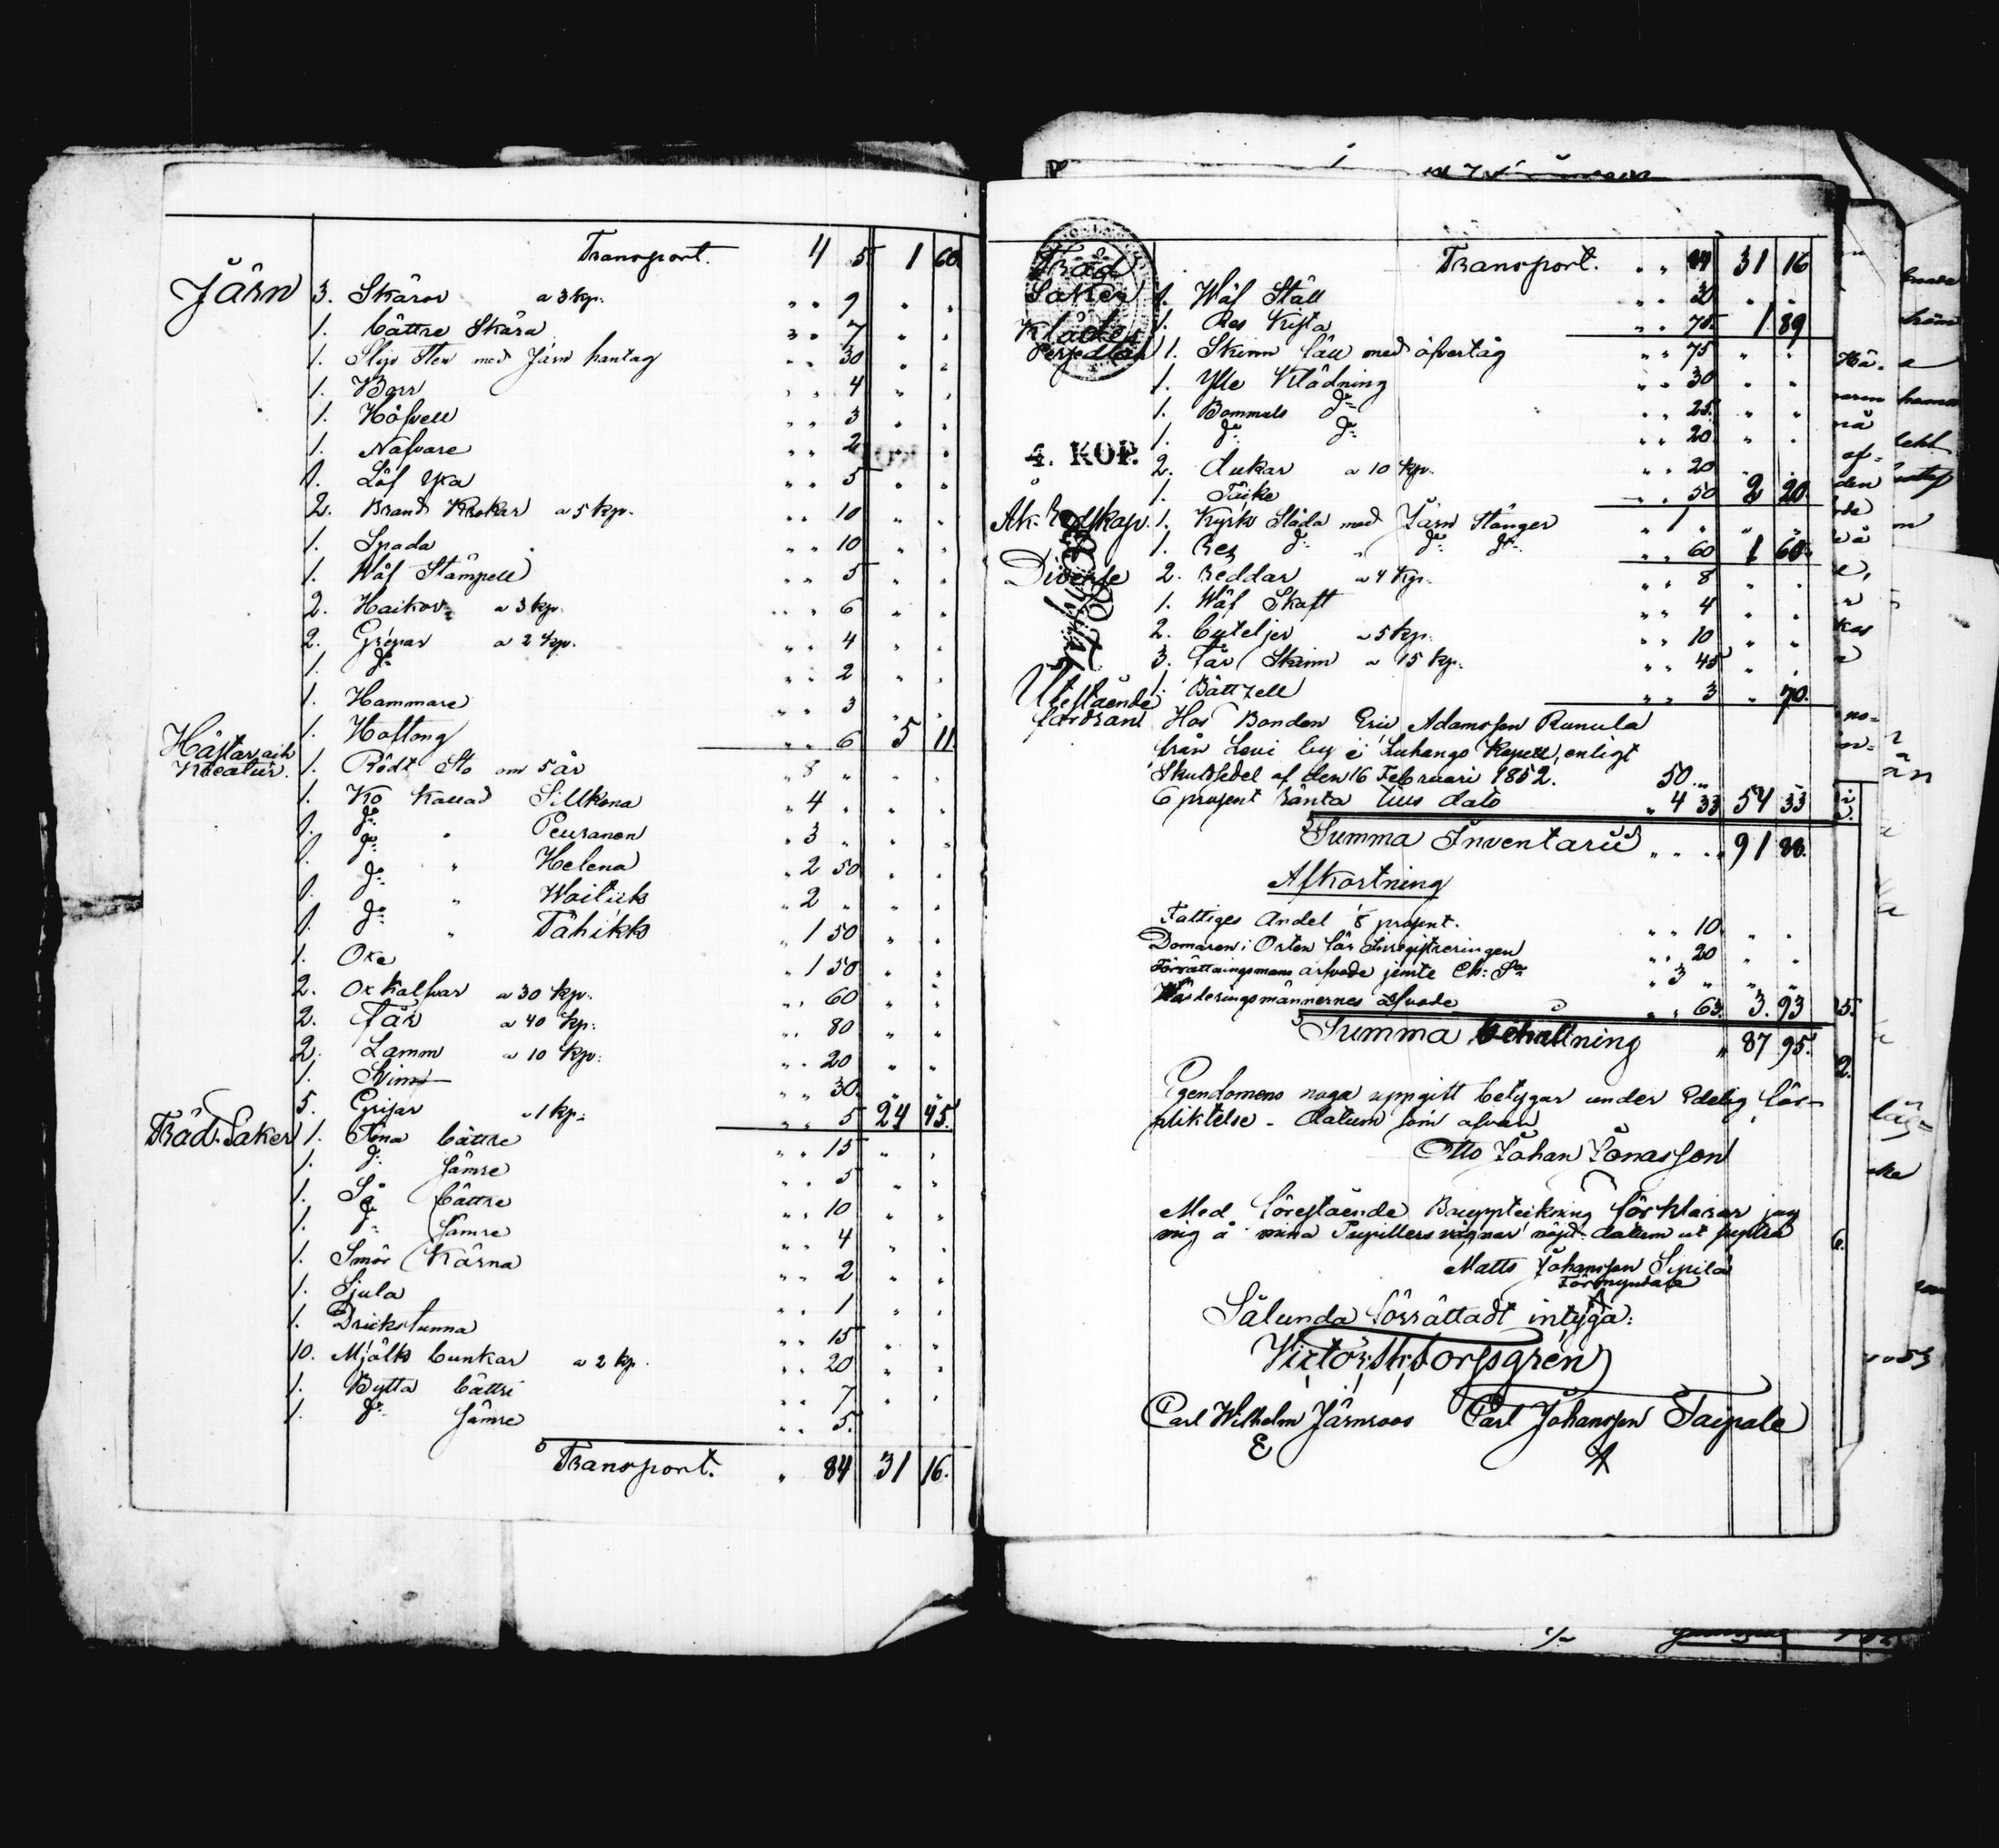 Transport. 4 5 1 60.
Järn 3. Skäror a 3 kp: " " 9 " "
1. bättre Skära " " 7 " "
1. Slip Sten med Järn hantag " " 30 " "
1. Borr " " 4 " "
1. Höfvell " " 3 " "
1. Nafvare " " 2 " "
1. Löf Yxa " " 5 " "
2. Brand Krokar a 5 kp. " " 10 " "
1. Spada " " 10 " "
1. Wäf Stämpell " " 5 " "
2. Haikor a 3 kp. " " 6 " "
2. Grepar a 2 kp. " " 4 " "
1. do " " 2 " "
1. Hammare " " 3 " "
1. Hoftong " " 6 5 11.
Hästar och
Kreatur. 1. Rödt Sto om 5 år " 8 " " "
1. Ko kallad Sillkona " 4 " " "
1. do " Peuranen " 3 " " "
1. do " Helena " 2 50 " "
1. do " Woitick " 2 " " "
1. do " Tähikk " 1 50 " "
1. Oxe " 1 50 " "
2. Oxkalfvar a 30 kp. " " 60 " "
2. Får a 40 kp: " " 80 " "
2. Lamm a 10 kp: " " 20 " "
1. Svin " " 30 " "
5. Grisar a 1 kp: " " 5 24 45.
Träd Saker 1. Tina bättre " " 15 " "
1. do sämre " " 5 " "
1. Så bättre " " 10 " "
1. do sämre " " 4 " "
1. Smör Kärna " " 2 " "
1. Sjula " " 1 " "
1. Drickstunna " " 15 " "
10. Mjölk bunkar a 2 kp. " " 20 " "
1. Bytta bättre " " 7 " "
1. do sämre " " 5.
Transport. " 84 31 16.
Träd Transport. " " 84 31 16
Saker 1. Wäf Ställ " " 30 " "
1. Res Kista " " 75. 1 89
Kläder
Persedlar 1. Skinn fäll med öfvertåg " " 75 " "
1. Ylle Klädning " " 30 " "
1. Bommuls do " " 25. " "
1. do do " " 20 " "
4. KOP.
2. dukar a 10 kp. " " 20 " "
1. Täcke " " 50 2 20.
Åk Redskap. 1. Kyrk Släda med Järn Stänger " 1 " " "
1. Res do " do do " " 60 1 60.
Diverse 2. Reddar a 4 kp. " " 8 " "
1. Wäf Skaft " " 4 " "
2. buteljer a 5 kp. " " 10 " "
3. Får Skinn a 15 kp. " " 45 " "
1. Bättzell " " 3 " 70.
Utestående
fordran Hos Bonden Eric Adamsson Runula
från Lovi by i Luhango Kapell, enligt
Skuldsedel af den 16 Februari 1852. 50 "
6 prosent Ränta tills dato " 4 33 54 33
Summa Inventarii " " " " 91 88.
Afkortning
Fattiges Andel 1/8 prosent. " " 10 " "
Domaren i Orten för Inregistreringen " " 20 " "
Förrättningsmans arfvode jemte Ch: Sa " 3 " " "
Värderingsmännernes arfvode " " 63. 3. 93
Summa behållning " 87 95.
Egendomens noga uppgift betygar under Edelig för-
pliktelse. datum som ofvan
Otto Johan Jonasson
Med förestående Bouppteckning förklarar jag
mig å mina Pupillers vägnar nöjd. datum ut supra
Matts Johansson Sipilä
Förmyndare
Sålunda förrättadt intyga:
Victor: M: Forssgren
Carl Wilhelm Järnroos Carl Johansson Taipale